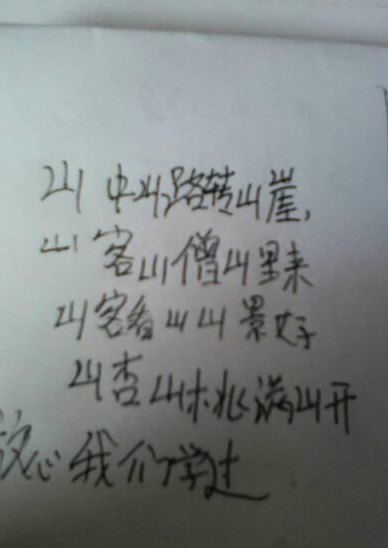 山中山路转山崖,
山客山僧山里来
山客看山山景好
山杏山桃满山开
放心我们学过